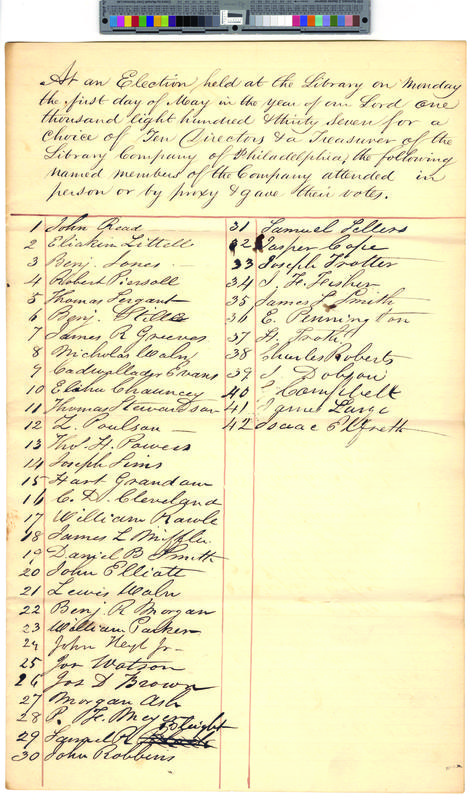 At an Election, held at the Library on Monday
the first day of May in the year of our Lord one
thousand eight hundred & thirty seven for a
choice of Ten Directors & a Treasurer of the
Library Company of Philadelphia, the following
named members of the Company attended in
person or by proxy & gave their votes.
1 John Read
2 Eliakim Littell
3 Benj. Jones
4 Robert Piersoll
5 Thomas Sergant
6 Benj.
7 James R Greeves
8 Nicholas Waln
9 Cadwallader Evans
10 Elihu Chauncey
11 Thomas Stewardson
12 Z. Poulson
13 Tho. H. Powers
14 Joseph Sims
15 Hart Grandom
16 C. D. Cleveland
17 William Rawle
18 James L Mifflin
19 Daniel B Smith
20 John Elliott
21 Lewis Waln
22 Benj. R Morgan
23 William Parker
24 John Heyl Jr
25 Jos Watson
26 Jos D Brown
27 Morgan Ash
28 P. F.
29 Samuel R Sleight
30 John Robbins
31 Samuel Sellers
32 Jasper Cope
33 Joseph Trotter
34 J. F. Fisher
35 James S Smith
36 E. Pennington
37 H. Troth
38 Charles Roberts
39 J Dobson
40 Campbell
41 James Large
42 Isaac Elfreth